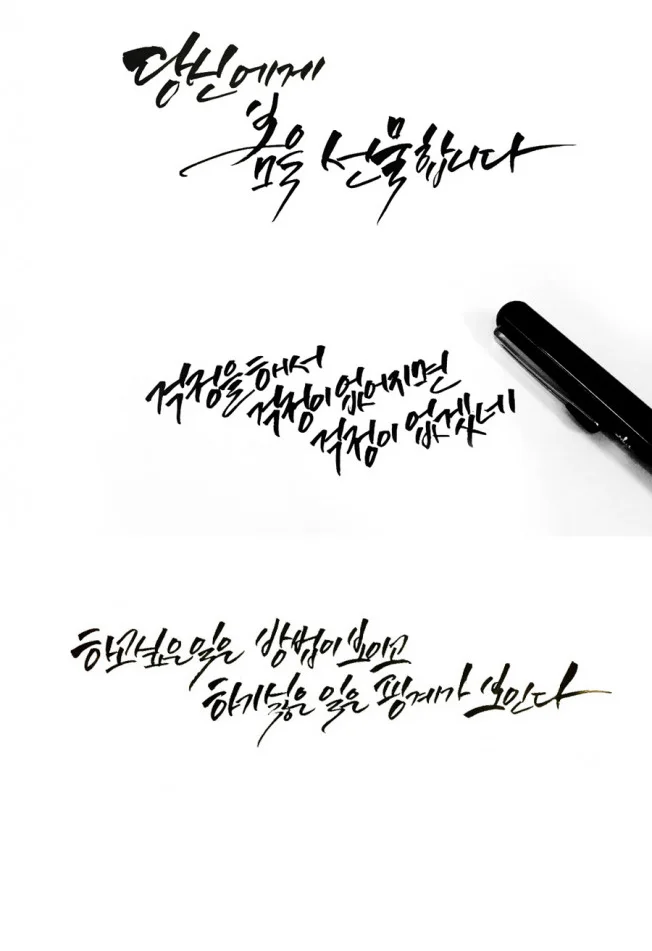 당신에게
봄을 선물합니다
걱정을 해서
걱정이 없어지면
걱정이 없겠네
하고 싶은 일은 방법이 보이고
하기 싫은 일은 핑계가 보인다